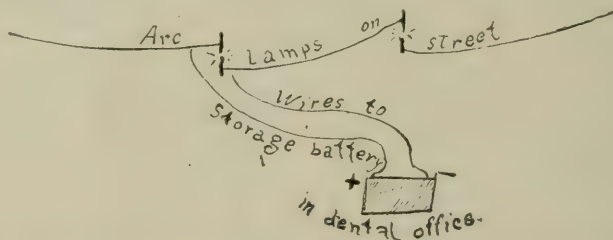 Arc Lamps on street
Wires to
Storage battery
+ −
in dental office.